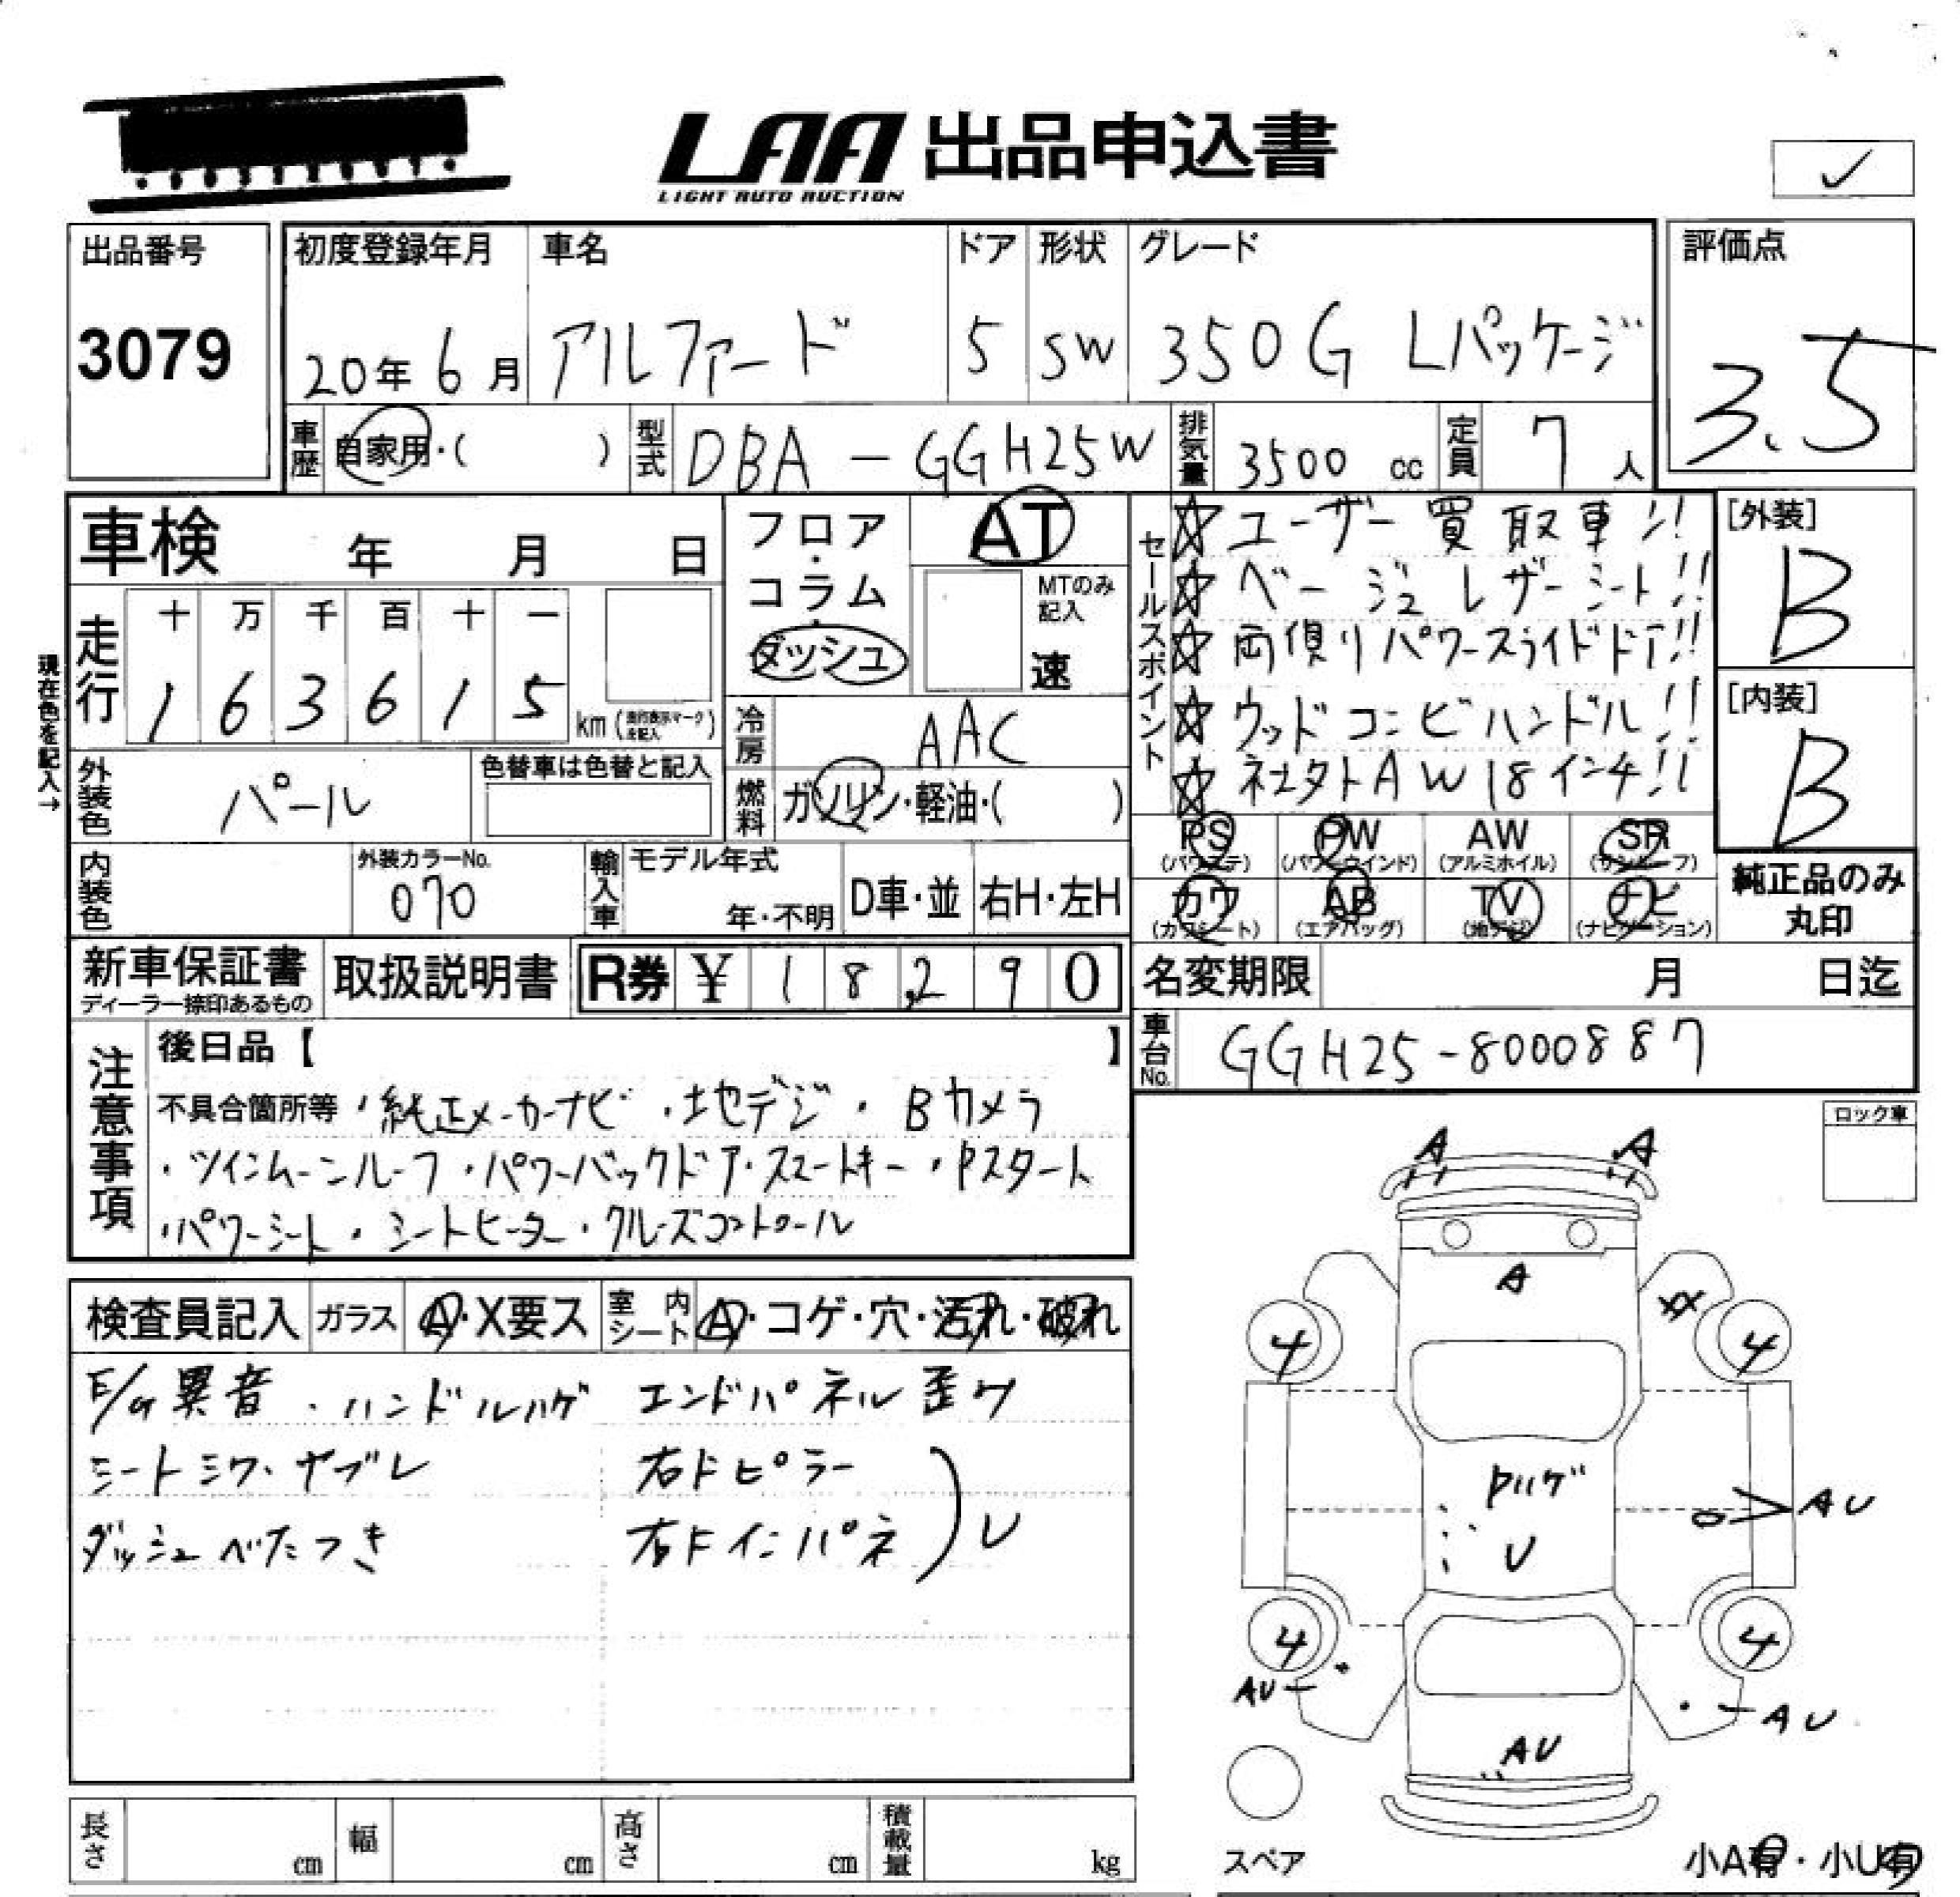 LAA 出品申込書
LIGHT AUTO AUCTION
✓
出品番号
3079
初度登録年月
20年 6月
車名
アルファード
ドア
5
形状
SW
グレード
350G Lパッケージ
評価点
3.5
車歴
自家用・( )
型式
DBA-GGH25W
排気量
3500 cc
定員
7 人
車検 年 月 日
フロア・コラム・ダッシュ
AT
MTのみ記入
速
セールスポイント
☆ユーザー買取車!!
☆ベージュレザーシート!!
☆両側パワースライドドア!!
☆ウッドコンビハンドル!!
☆社外AW18インチ!!
[外装]
B
[内装]
B
現在色を記入→
走行
十 万 千 百 十 一
1 6 3 6 1 5
km (走行表示マーク 先記入)
冷房
AAC
外装色
パール
色替車は色替と記入
燃料
ガソリン・軽油・( )
PS AW PW SR
(パワステ) (パワーウインド) (アルミホイル) (サンルーフ)
カワ AB TV ナビ
(カワシート) (エアバッグ) (地デジ) (ナビゲーション)
純正品のみ
丸印
内装色
外装カラーNo.
070
輸入車
モデル年式
年・不明
D車・並
右H・左H
新車保証書
ディーラー捺印あるもの
取扱説明書
R券 ¥ 18,290
名変期限 月 日迄
車台No.
GGH25-8000887
注意事項
後日品【 】
不具合箇所等・純正メーカーナビ・地デジ・Bカメラ
・ツインムーンルーフ・パワーバックドア・スマートキー・Pスタート
・パワーシート・シートヒーター・クルーズコントロール
ロック車
検査員記入
ガラス
A・X要ス
室内シート
A・コゲ・穴・汚れ・破れ
E/G異音・ハンドルハゲ エンドパネル歪ワ
シートミワ・ヤブレ 右Fピラー
ダッシュべたつき 右Fインパネ ) U
A A
A
XX
4 4
Pハゲ
U
AU
4 4
AU
AU
AU
長さ cm
幅 cm
高さ cm
積載量 kg
スペア
小A有・小U有